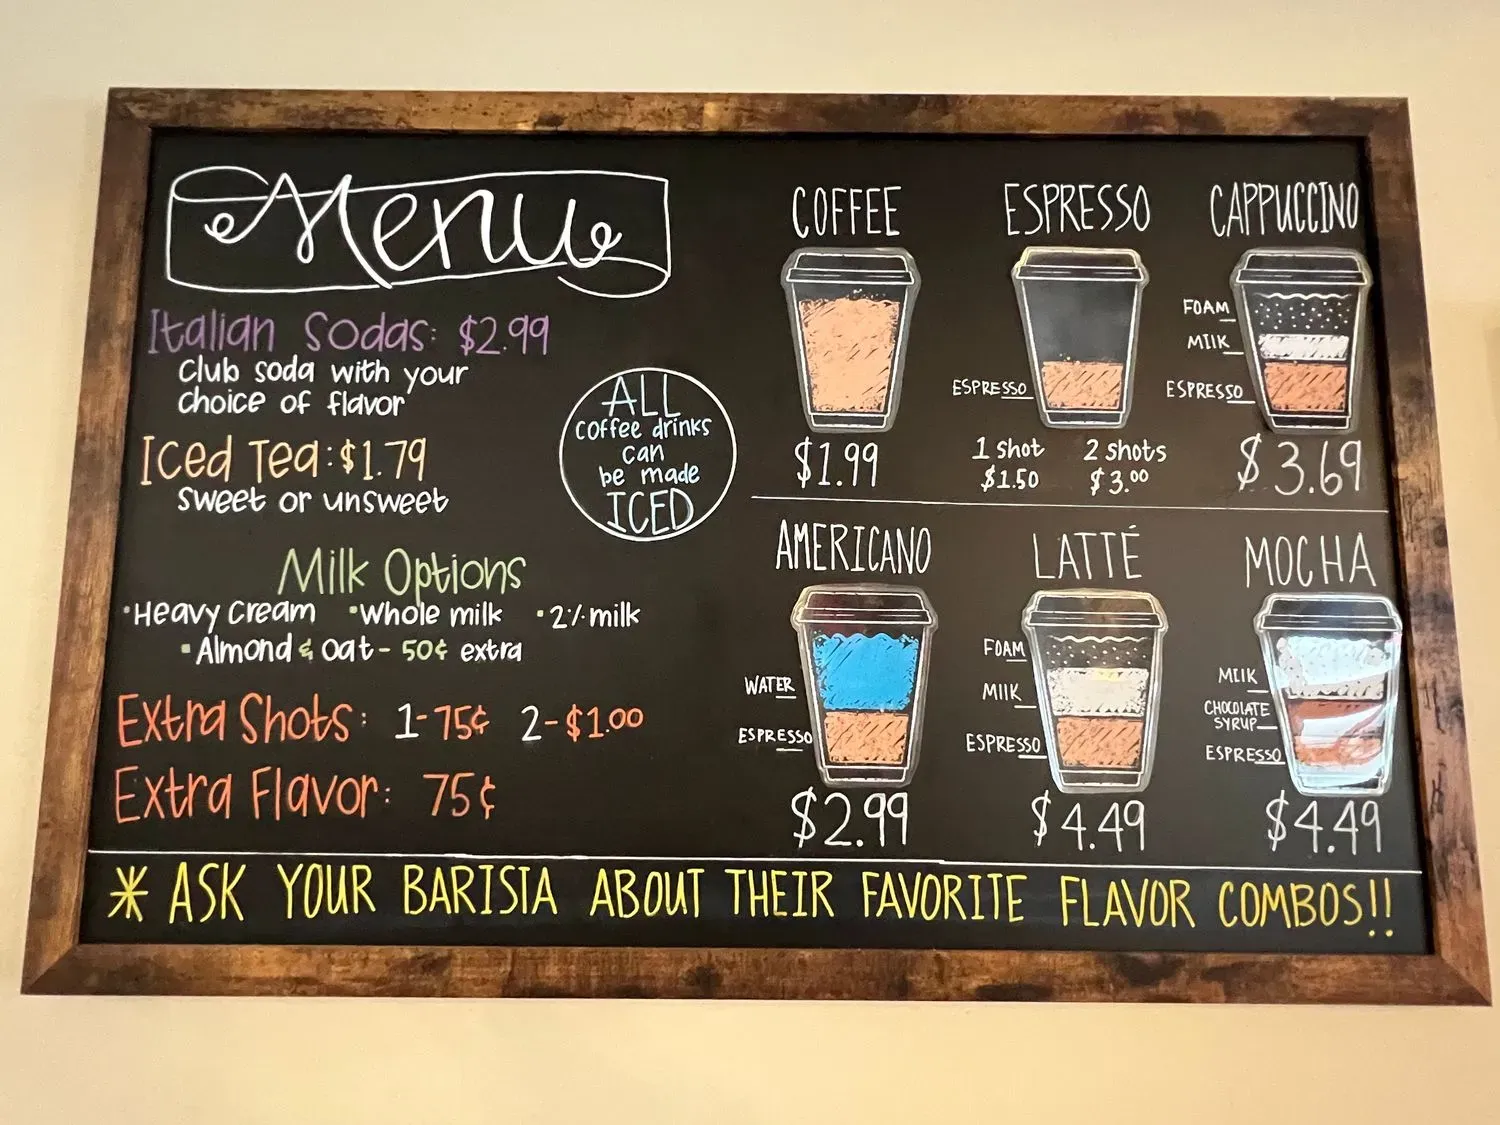 Menu
Italian Sodas: $2.99
Club soda with your
choice of flavor
Iced Tea: $1.79
sweet or unsweet
ALL
coffee drinks
can
be made
ICED
Milk Options
•Heavy Cream •Whole milk •2% milk
•Almond & oat - 50¢ extra
Extra Shots: 1-75¢ 2-$1.00
Extra Flavor: 75¢
COFFEE
$1.99
ESPRESSO
ESPRESSO
1 shot 2 shots
$1.50 $3.00
CAPPUCCINO
FOAM
MILK
ESPRESSO
$3.69
AMERICANO
WATER
ESPRESSO
$2.99
LATTÉ
FOAM
MILK
ESPRESSO
$4.49
MOCHA
MILK
CHOCOLATE
SYRUP
ESPRESSO
$4.49
* ASK YOUR BARISTA ABOUT THEIR FAVORITE FLAVOR COMBOS!!